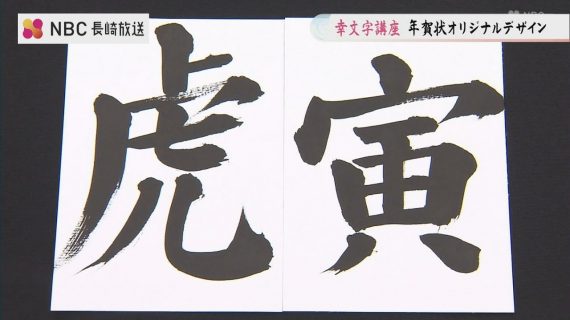 NBC 長崎放送
幸文字講座 年賀状オリジナルデザイン
NBC
虎 寅